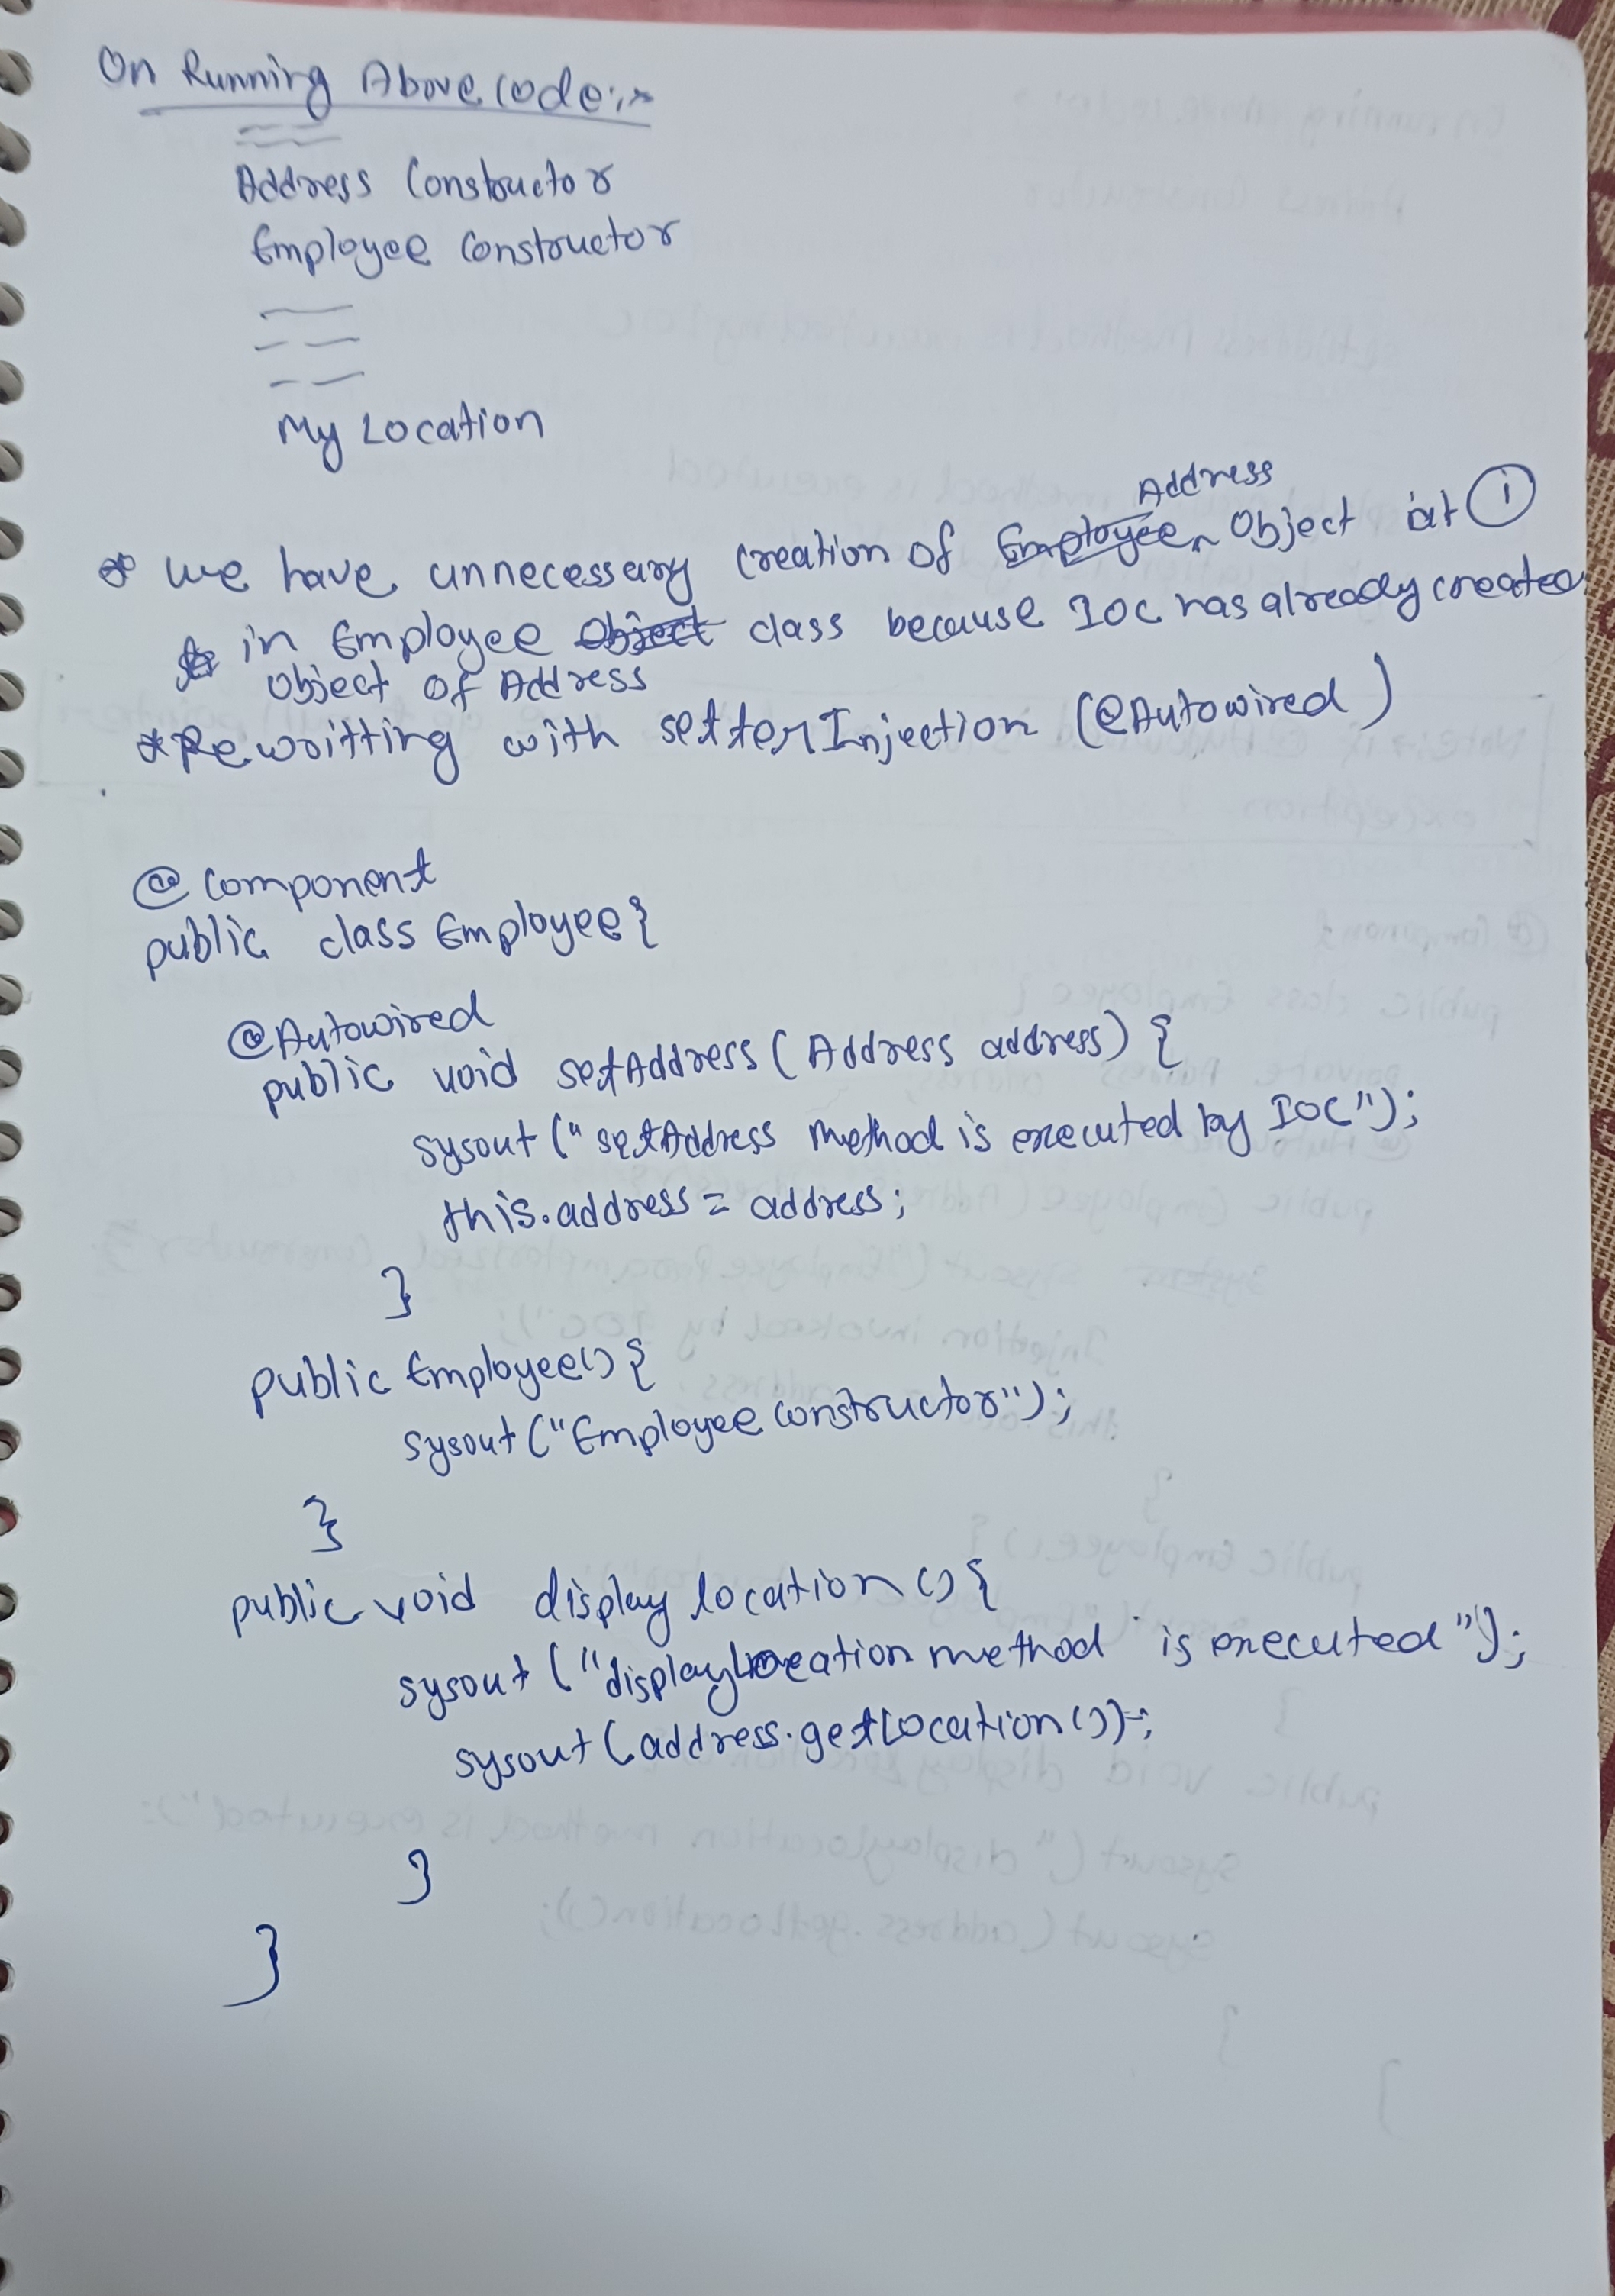 On Running Above code:-
Address Constructor
Employee Constructor
My Location
* We have unnecessary creation of Employee Address Object at ①
in Employee Object class because IOC has already created
object of Address
* Rewritting with setterInjection (@Autowired)
@Component
public class Employee {
@Autowired
public void setAddress (Address address) {
sysout ("setAddress method is executed by IOC");
this.address = address;
}
public Employee() {
sysout ("Employee Constructor");
}
public void display location () {
sysout ("displayLocation method is executed");
sysout (address.getLocation());
}
}